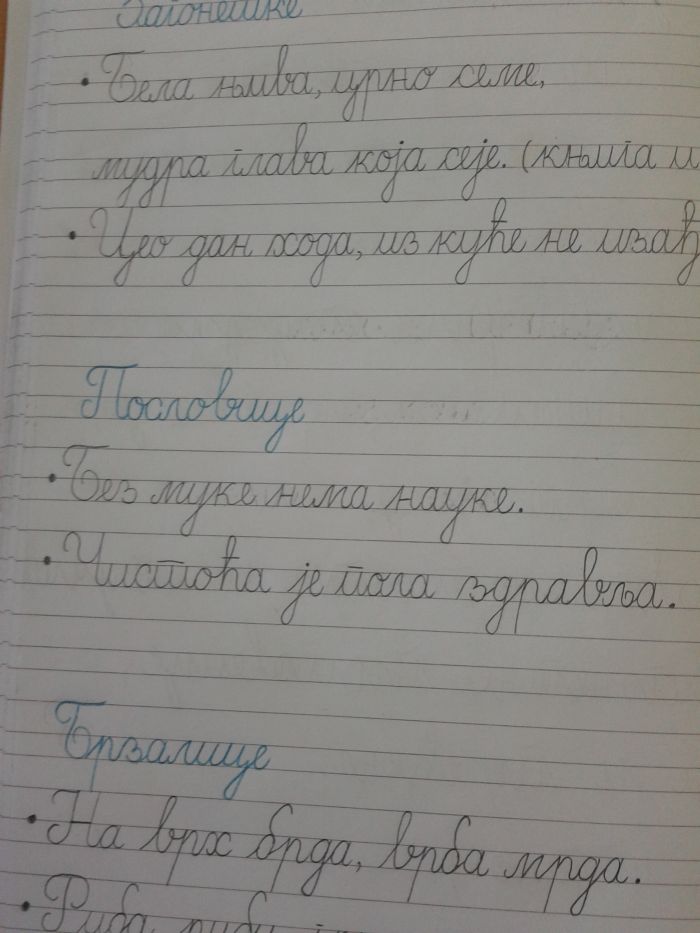 Загонетке
• Бела њива, црно семе,
мудра глава која сеје. (књига и
• Цео дан хода, из куће не изађ
Пословице
• Без муке нема науке.
• Чистоћа је пола здравља.
Брзалице
• На врх брда, врба мрда.
• Риба риби